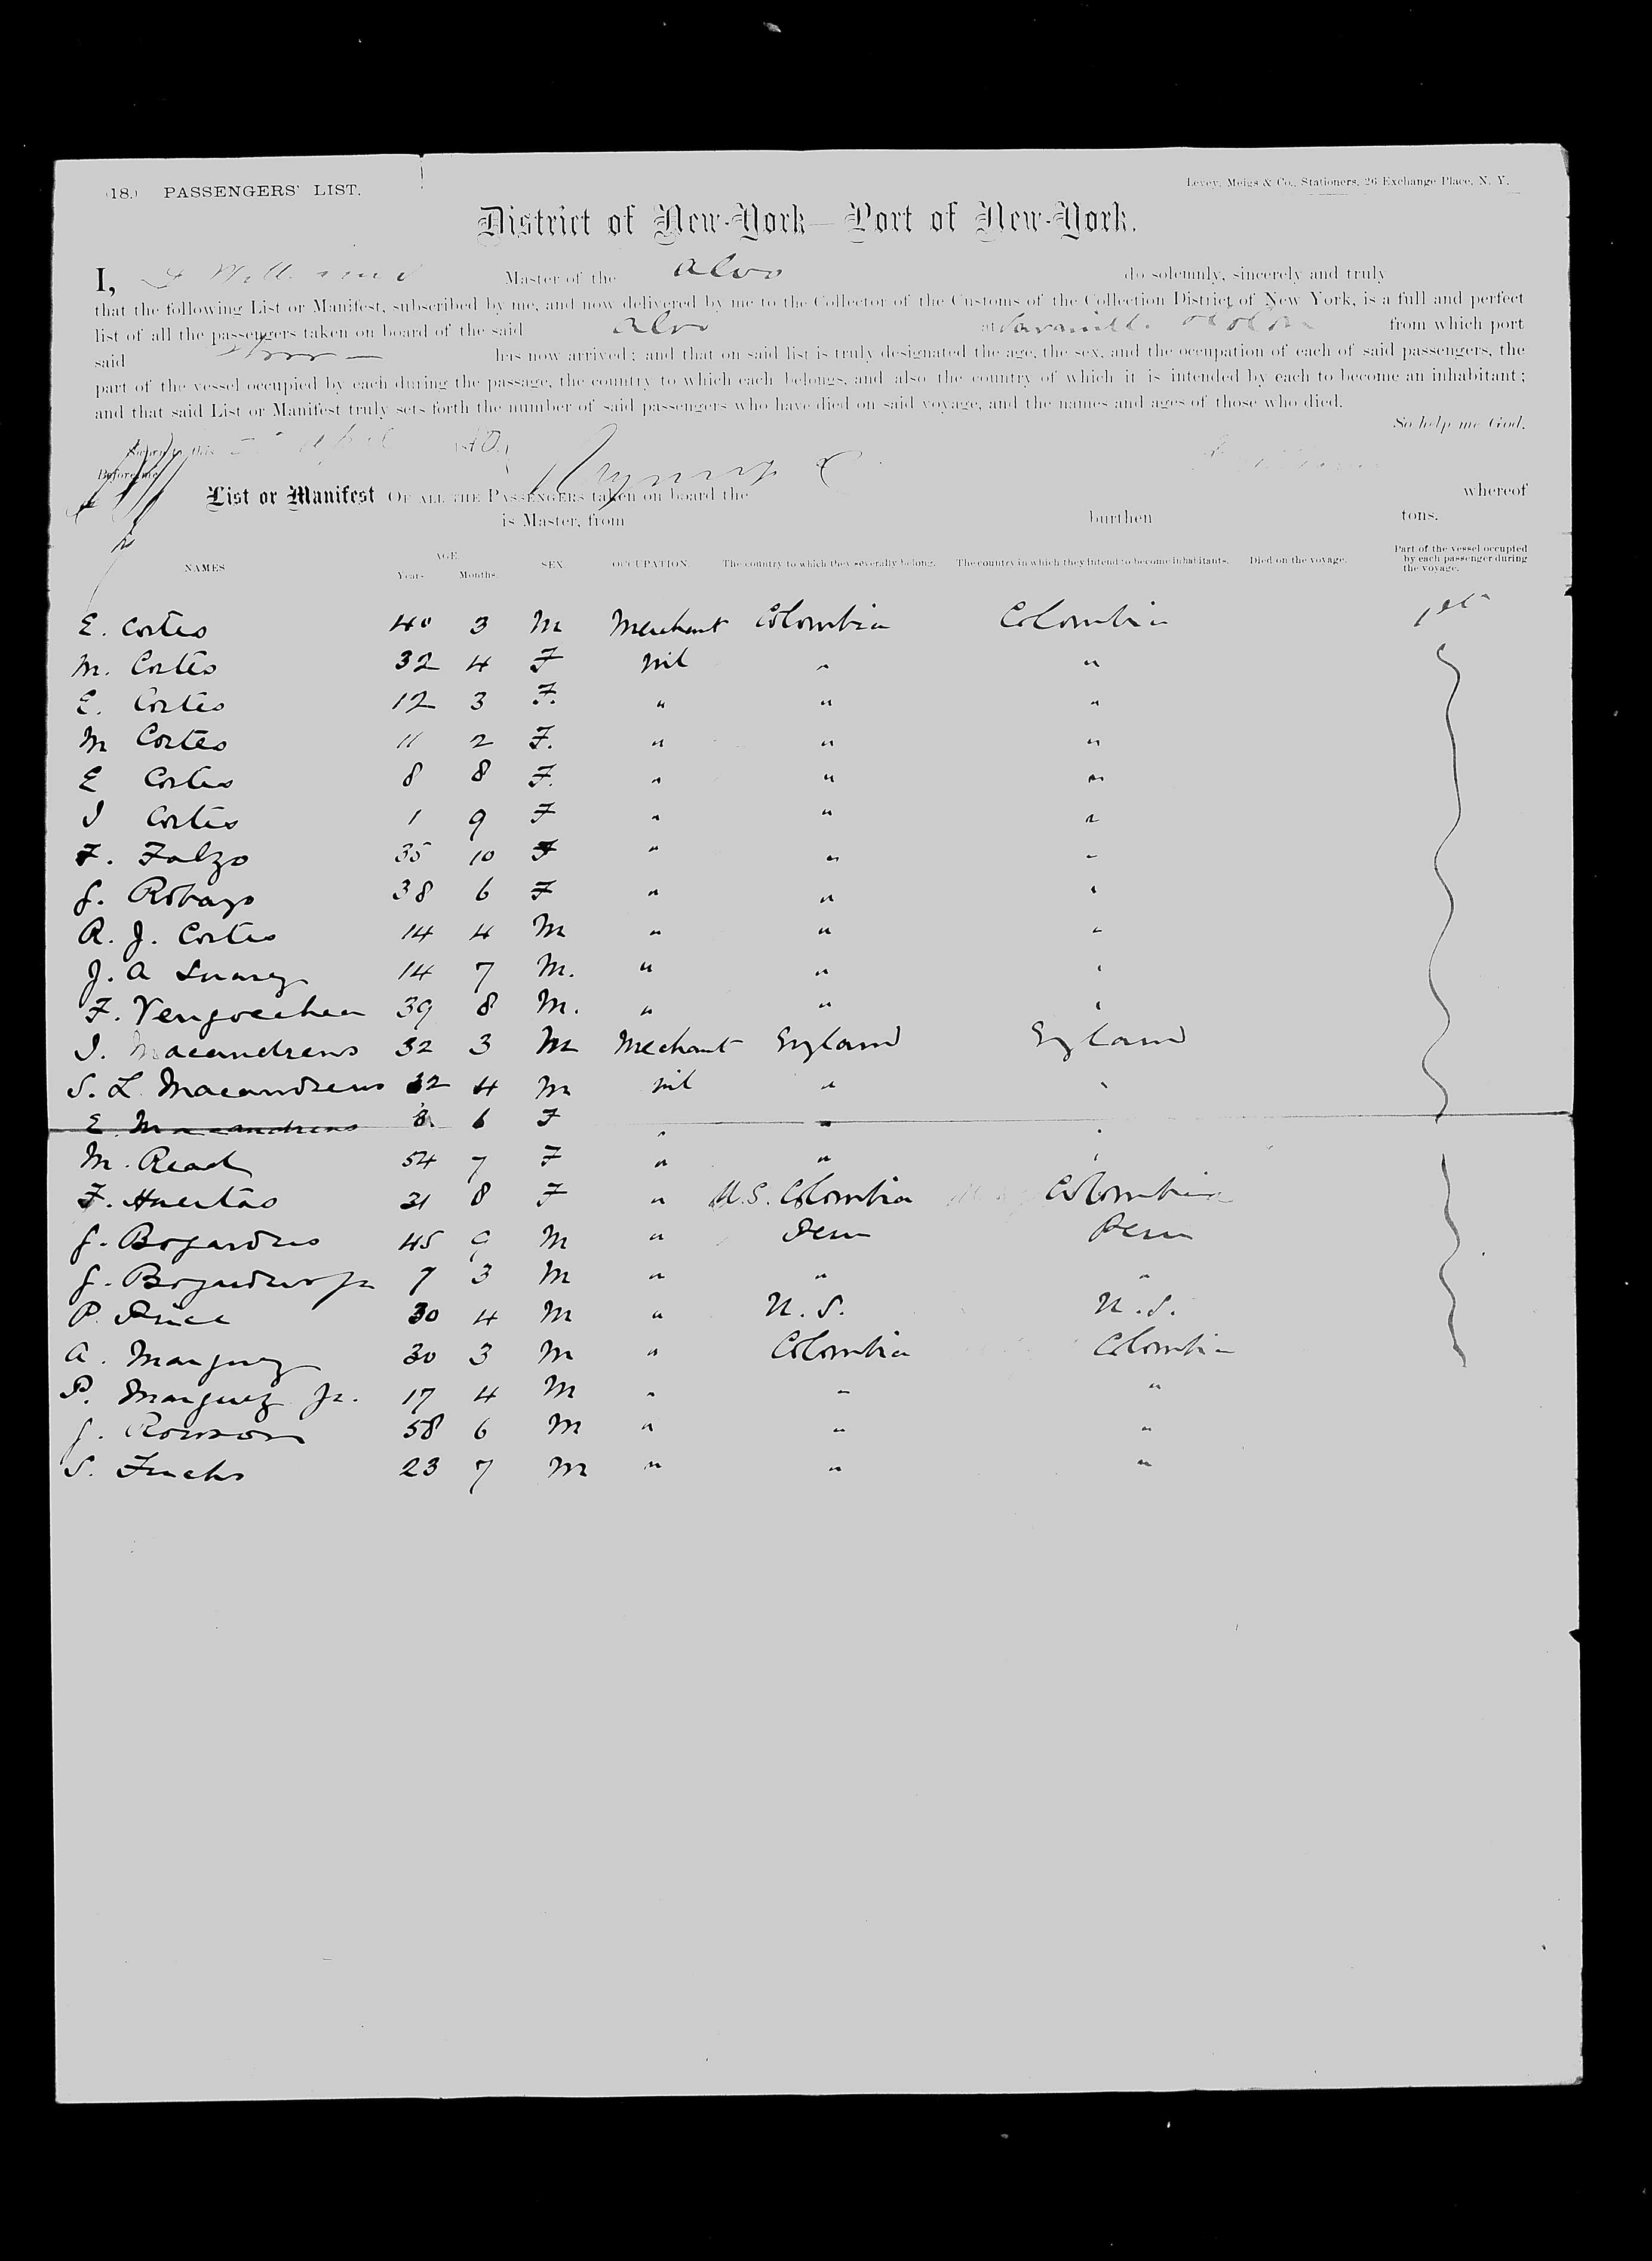 (18.) PASSENGERS' LIST.
Levey, Meigs & Co., Stationers, 26 Exchange Place, N. Y.
District of New-York—Port of New-York.
I, Master of the Alvo do solemnly, sincerely and truly
that the following List or Manifest, subscribed by me, and now delivered by me to the Collector of the Customs of the Collection District of New York, is a full and perfect
list of all the passengers taken on board of the said Alvo at from which port
said has now arrived; and that on said list is truly designated the age, the sex, and the occupation of each of said passengers, the
part of the vessel occupied by each during the passage, the country to which each belongs, and also the country of which it is intended by each to become an inhabitant;
and that said List or Manifest truly sets forth the number of said passengers who have died on said voyage, and the names and ages of those who died.
So help me God.
Sworn to this April
Before me
List or Manifest OF ALL THE PASSENGERS taken on board the whereof
is Master, from burthen tons.
NAMES AGE. Years Months. SEX OCCUPATION. The country to which they severally belong. The country in which they intend to become inhabitants. Died on the voyage. Part of the vessel occupied by each passenger during the voyage.
E. Cortes 40 3 M Merchant Colombia Colombia
M. Cortes 32 4 F nil " "
E. Cortes 12 3 F. " " "
M Cortes 11 2 F. " " "
E Cortes 8 8 F. " " "
I Cortes 1 9 F " " "
F. Falzo 35 10 F " " "
J. Robayo 38 6 F " " "
R. J. Cortes 14 4 M " " "
J. A Suarez 14 7 M. " " "
F. Vengoechea 39 8 M. " " "
I. Macandrews 32 3 M Mechant England England
S. L. Macandrews 32 4 M nil " "
E. Macandrews 8 6 F " " "
M. Read 54 7 F " " "
F. Huertas 31 8 F " U.S. Colombia Colombia
J. Bogardus 45 9 M " Peru Peru
J. Bogardus Jr 7 3 M " " "
P. Price 30 4 M " U.S. U.S.
A. Marquez 30 3 M " Colombia Colombia
P. Marquez Jr. 17 4 M " " "
J. 58 6 M " " "
S. Fuchs 23 7 M " " "